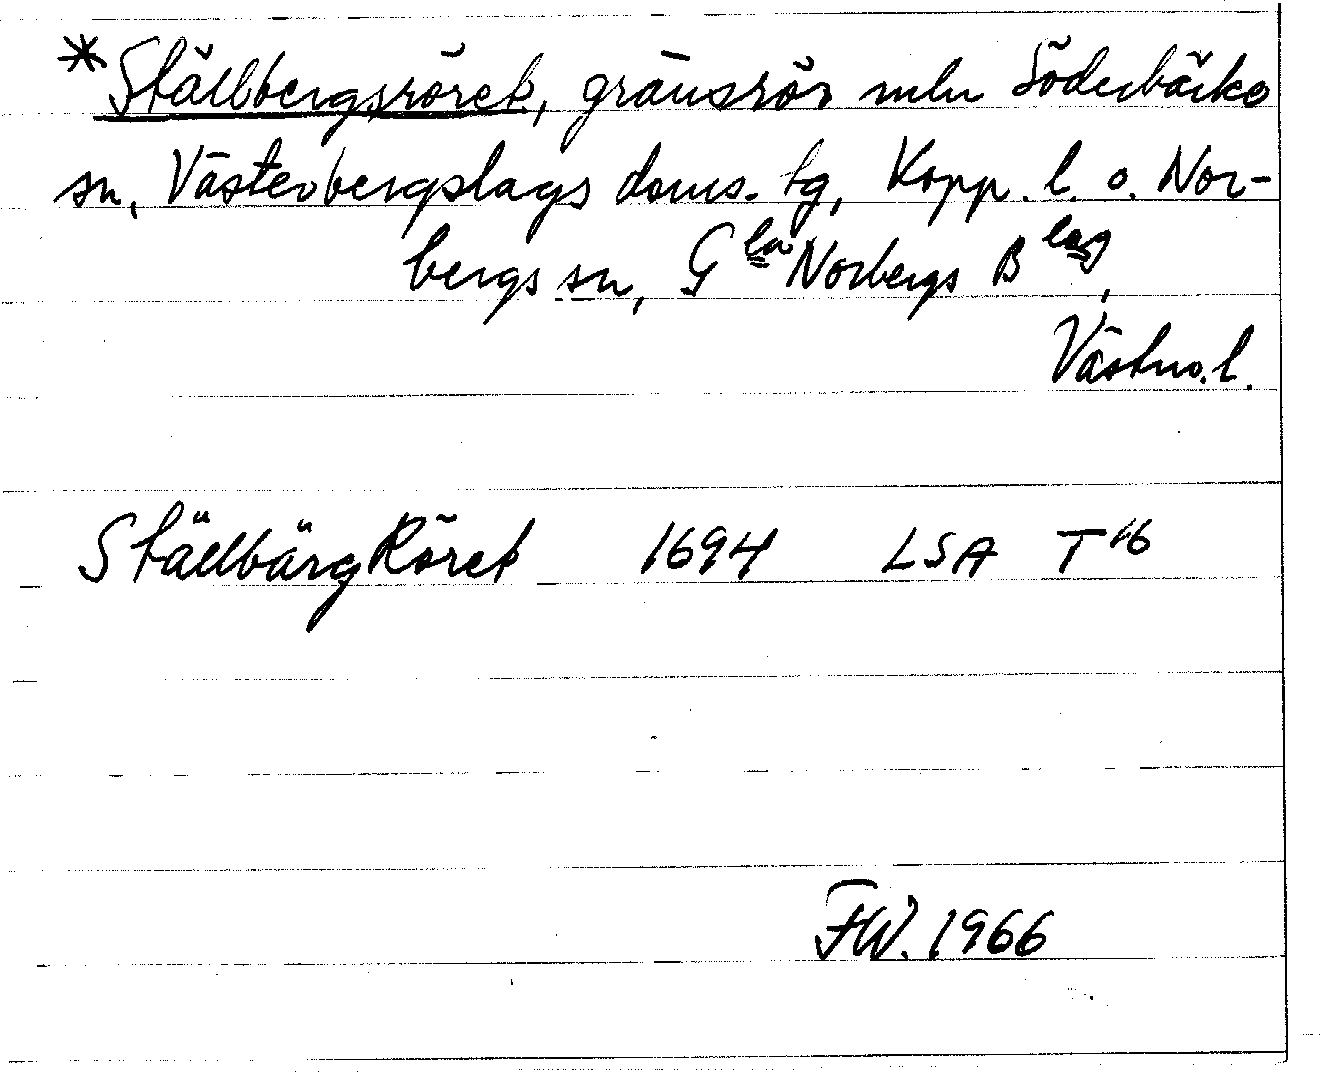 * Ställbergsröret, gränsrör mln Söderbärke
sn, Västerbergslags doms. tg, Kopp. l. o. Nor-
bergs sn, Gla Norbergs Blag,
Västm. l.
StällbärgRöret 1694 LSA T16
FW. 1966